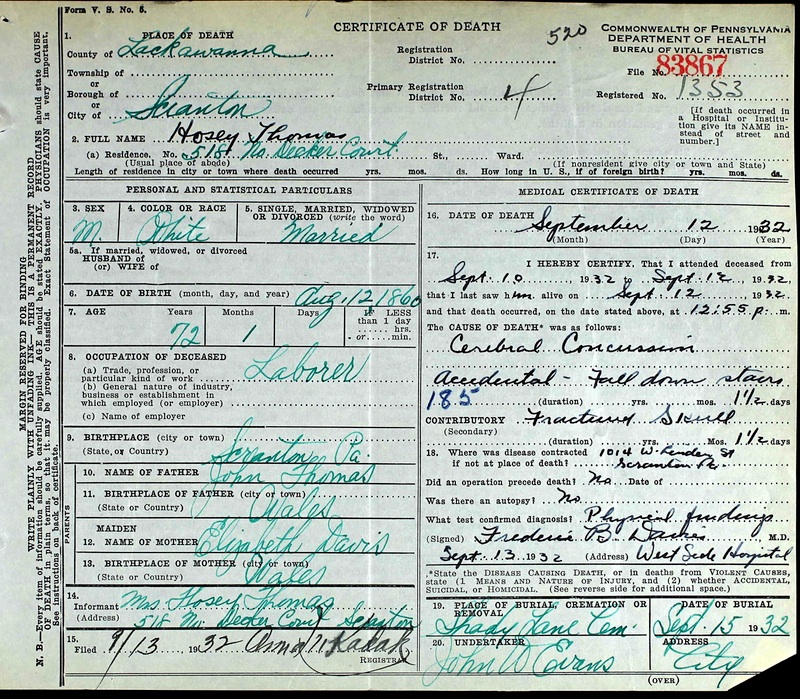 Form V. S. No. 5.
CERTIFICATE OF DEATH
520
COMMONWEALTH OF PENNSYLVANIA
DEPARTMENT OF HEALTH
BUREAU OF VITAL STATISTICS
1. PLACE OF DEATH
County of Lackawanna
Registration
District No.
File No. 83867
Township of
or
Borough of
or
City of Scranton
Primary Registration
District No. 4
Registered No. 1353
[If death occurred in
a Hospital or Institu-
tion give its NAME in-
stead of street and
number.]
2. FULL NAME Hosey Thomas
(a) Residence. No. 518 No. Decker Court St., Ward.
(Usual place of abode) (If nonresident give city or town and State)
Length of residence in city or town where death occurred yrs. mos. ds. How long in U. S., if of foreign birth? yrs. mos. ds.
PERSONAL AND STATISTICAL PARTICULARS
3. SEX
M.
4. COLOR OR RACE
White
5. SINGLE, MARRIED, WIDOWED
OR DIVORCED (write the word)
Married
5a. If married, widowed, or divorced
HUSBAND of
(or) WIFE of
6. DATE OF BIRTH (month, day, and year) Aug. 12, 1860
7. AGE Years Months Days If LESS
than 1 day
hrs.
or min.
72 1
8. OCCUPATION OF DECEASED
(a) Trade, profession, or
particular kind of work Laborer
(b) General nature of industry,
business or establishment in
which employed (or employer)
(c) Name of employer
9. BIRTHPLACE (city or town)
(State, or Country) Scranton Pa.
PARENTS
10. NAME OF FATHER John Thomas
11. BIRTHPLACE OF FATHER (city or town)
(State or Country) Wales
MAIDEN
12. NAME OF MOTHER Elizabeth Davis
13. BIRTHPLACE OF MOTHER (city or town)
(State or Country) Wales
14. Informant Mrs Hosey Thomas
(Address) 518 No. Decker Court Scranton
15.
Filed 9/13, 1932
REGISTRAR
MEDICAL CERTIFICATE OF DEATH
16. DATE OF DEATH September 12 1932
(Month) (Day) (Year)
17. I HEREBY CERTIFY, That I attended deceased from
Sept. 10, 1932 to Sept. 12, 1932
that I last saw him alive on Sept. 12 1932
and that death occurred, on the date stated above, at 12:55 P. m.
The CAUSE OF DEATH* was as follows:
Cerebral Concussion
Accidental - Fall down stairs
185 (duration) yrs. mos. 1½ days
CONTRIBUTORY Fractured Skull
(Secondary)
(duration) yrs. Mos. 1½ days
18. Where was disease contracted 1014 W. Linden St
if not at place of death? Scranton Pa.
Did an operation precede death? No Date of
Was there an autopsy? No
What test confirmed diagnosis? Physical findings
(Signed) Frederic B. Davies M.D.
Sept. 13, 1932 (Address) West Side Hospital
*State the DISEASE CAUSING DEATH, or in deaths from VIOLENT CAUSES,
state (1 MEANS AND NATURE OF INJURY, and (2) whether ACCIDENTAL,
SUICIDAL, or HOMICIDAL. (See reverse side for additional space.)
19. PLACE OF BURIAL, CREMATION OR
REMOVAL
Shady Lane Cem.
DATE OF BURIAL
Sept. 15 1932
20. UNDERTAKER
John W Evans
ADDRESS
City
(OVER)
MARGIN RESERVED FOR BINDING
WRITE PLAINLY WITH UNFADING INK—THIS IS A PERMANENT RECORD
N. B.—Every item of information should be carefully supplied. AGE should be stated EXACTLY. PHYSICIANS should state CAUSE
OF DEATH in plain terms, so that it may be properly classified. Exact Statement of OCCUPATION is very important.
See instructions on back of certificate.